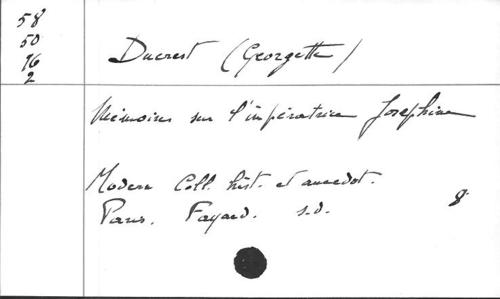 58
50
76
2
Ducrest (Georgette)
Mémoires sur l'impératrice Joséphine
Modern Coll. hist. et anecdot.
Paris. Fayard. s.d. 8°